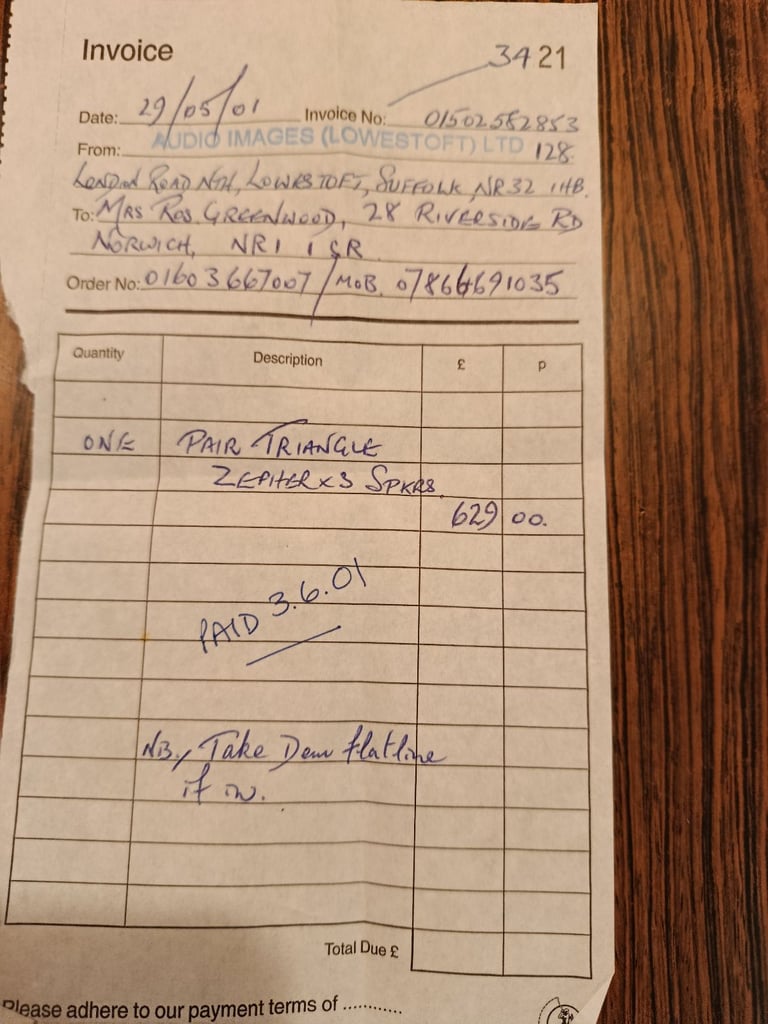 Invoice 3421
Date: 29/05/01 Invoice No: 01502582853
From: AUDIO IMAGES (LOWESTOFT) LTD 128
LONDON ROAD NTH, LOWESTOFT, SUFFOLK, NR32 1HB.
To: MRS ROS GREENWOOD, 28 RIVERSIDE RD
NORWICH, NR1 1SR
Order No: 01603 667007 / MOB. 07866691035
Quantity Description £ p
ONE PAIR TRIANGLE
ZEPHER XS SPKRS.
629 00.
PAID 3.6.01
NB., Take Dem flatline
if in.
Total Due £
Please adhere to our payment terms of ............